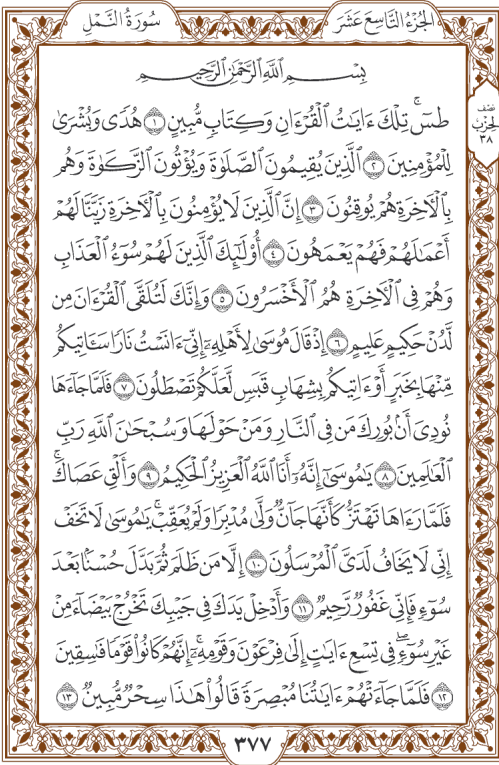 الجُزْءُ التَّاسِعَ عَشَرَ
سُورَةُ النَّمْلِ
بِسْمِ اللَّهِ الرَّحْمَٰنِ الرَّحِيمِ
نصف
الحزب
٣٨
طسٓۚ تِلْكَ ءَايَٰتُ الْقُرْءَانِ وَكِتَابٍ مُّبِينٍ ١ هُدًى وَبُشْرَىٰ
لِلْمُؤْمِنِينَ ٢ الَّذِينَ يُقِيمُونَ الصَّلَوٰةَ وَيُؤْتُونَ الزَّكَوٰةَ وَهُم
بِالْءَاخِرَةِ هُمْ يُوقِنُونَ ٣ إِنَّ الَّذِينَ لَا يُؤْمِنُونَ بِالْءَاخِرَةِ زَيَّنَّا لَهُمْ
أَعْمَٰلَهُمْ فَهُمْ يَعْمَهُونَ ٤ أُوْلَٰٓئِكَ الَّذِينَ لَهُمْ سُوٓءُ الْعَذَابِ
وَهُمْ فِي الْءَاخِرَةِ هُمُ الْأَخْسَرُونَ ٥ وَإِنَّكَ لَتُلَقَّى الْقُرْءَانَ مِن
لَّدُنْ حَكِيمٍ عَلِيمٍ ٦ إِذْ قَالَ مُوسَىٰ لِأَهْلِهِۦٓ إِنِّيٓ ءَانَسْتُ نَارًا سَـَٔاتِيكُم
مِّنْهَا بِخَبَرٍ أَوْ ءَاتِيكُم بِشِهَابٍ قَبَسٍ لَّعَلَّكُمْ تَصْطَلُونَ ٧ فَلَمَّا جَآءَهَا
نُودِيَ أَنۢ بُورِكَ مَن فِي النَّارِ وَمَنْ حَوْلَهَا وَسُبْحَٰنَ اللَّهِ رَبِّ
الْعَٰلَمِينَ ٨ يَٰمُوسَىٰٓ إِنَّهُۥٓ أَنَا اللَّهُ الْعَزِيزُ الْحَكِيمُ ٩ وَأَلْقِ عَصَاكَۚ
فَلَمَّا رَءَاهَا تَهْتَزُّ كَأَنَّهَا جَآنٌّ وَلَّىٰ مُدْبِرًا وَلَمْ يُعَقِّبْۚ يَٰمُوسَىٰ لَا تَخَفْ
إِنِّي لَا يَخَافُ لَدَيَّ الْمُرْسَلُونَ ١٠ إِلَّا مَن ظَلَمَ ثُمَّ بَدَّلَ حُسْنًۢا بَعْدَ
سُوٓءٍ فَإِنِّي غَفُورٌ رَّحِيمٌ ١١ وَأَدْخِلْ يَدَكَ فِي جَيْبِكَ تَخْرُجْ بَيْضَآءَ مِنْ
غَيْرِ سُوٓءٍۖ فِي تِسْعِ ءَايَٰتٍ إِلَىٰ فِرْعَوْنَ وَقَوْمِهِۦٓۚ إِنَّهُمْ كَانُوا۟ قَوْمًا فَٰسِقِينَ
١٢ فَلَمَّا جَآءَتْهُمْ ءَايَٰتُنَا مُبْصِرَةً قَالُوا۟ هَٰذَا سِحْرٌ مُّبِينٌ ١٣
٣٧٧